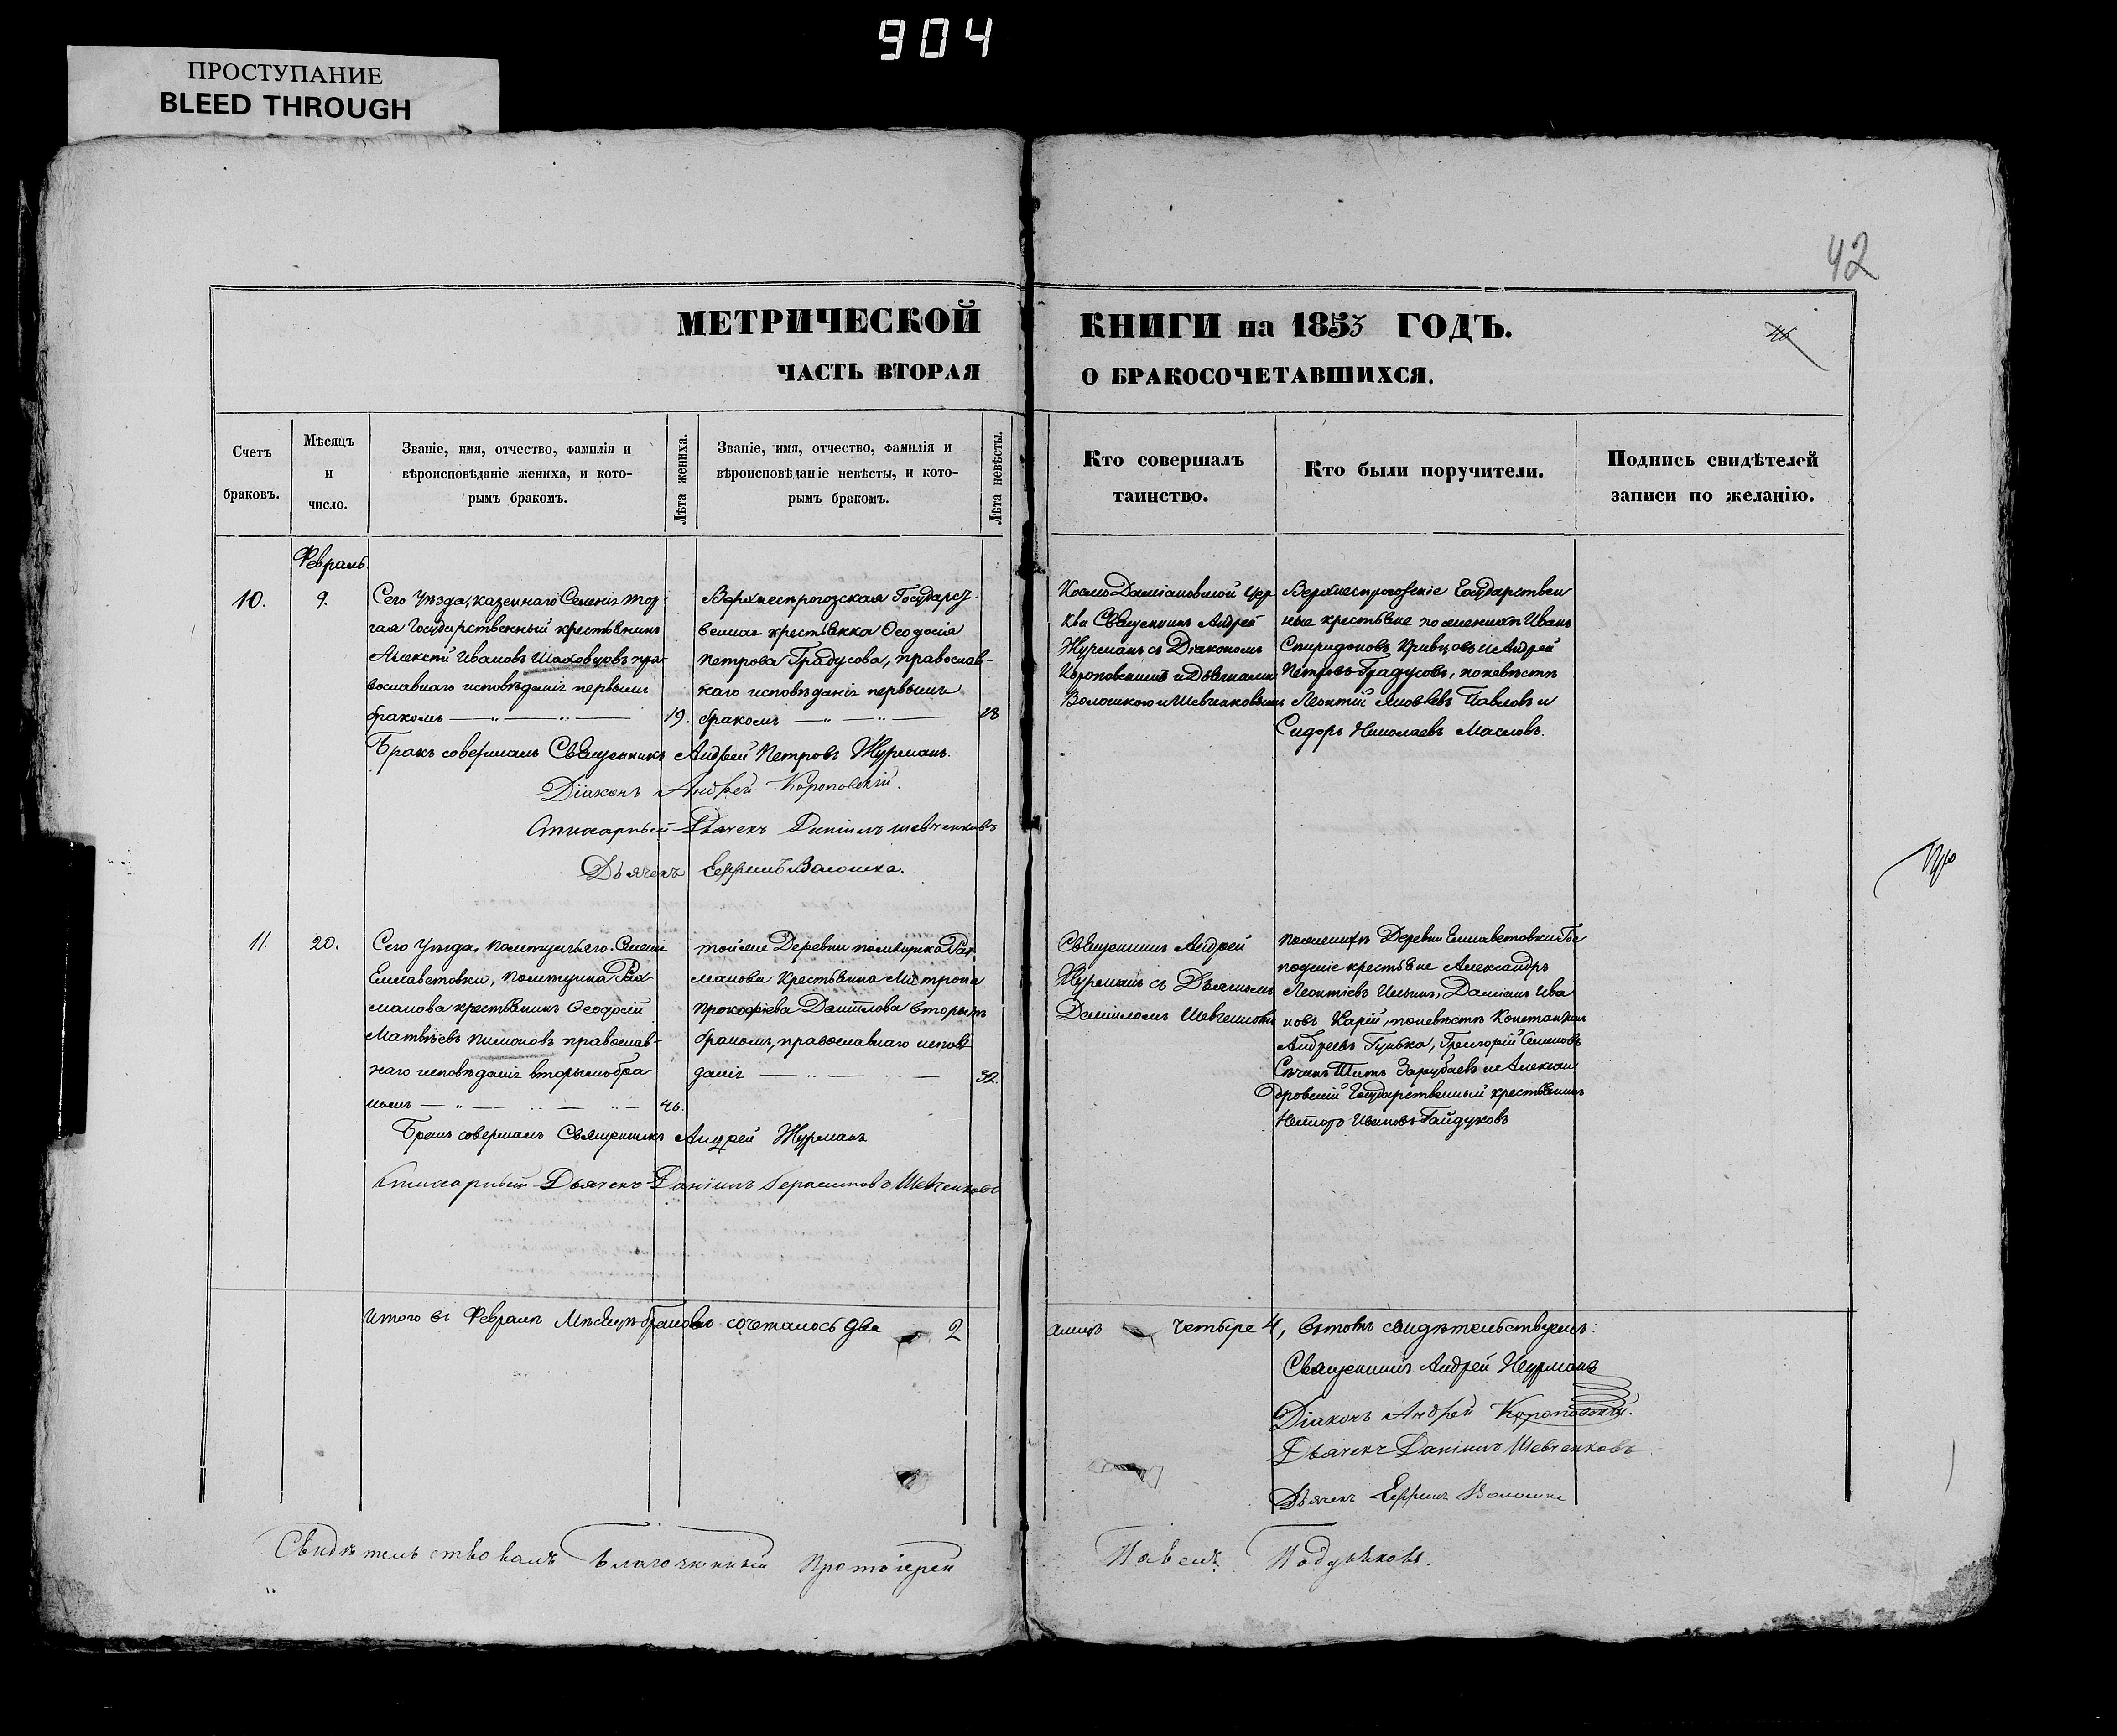 904
ПРОСТУПАНИЕ
BLEED THROUGH
42
МЕТРИЧЕСКОЙ КНИГИ на 1853 ГОДЪ.
46
ЧАСТЬ ВТОРАЯ О БРАКОСОЧЕТАВШИХСЯ.
Счетъ браковъ.
Мѣсяцъ и число.
Званіе, имя, отчество, фамилія и
вѣроисповѣданіе жениха, и кото-
рымъ бракомъ.
Лѣта жениха.
Званіе, имя, отчество, фамилія и
вѣроисповѣданіе невѣсты, и кото-
рымъ бракомъ.
Лѣта невѣсты.
Кто совершалъ
таинство.
Кто были поручители.
Подпись свидѣтелей
записи по желанію.
Февраль
10.
9.
Сего Уѣзда, казеннаго Селенія
гая Государственный крестьянинъ
Алексѣй Ивановъ Шаховцовъ пра-
вославнаго исповѣданія первымъ
бракомъ
19.
Верхнерогозская Государст-
венная крестьянка Ѳеодосія
Петрова Градусова, православ-
наго исповѣданія первымъ
бракомъ
18
Космо Даміановской Цер
кви Священникъ Андрей
Журманъ съ Діакономъ
Короповскимъ и Дьячками
Волошкою и Шевченковымъ
Государствен
ные крестьяне по женихѣ Иванъ
Спиридоновъ Кривцовъ и Андрей
Петровъ Градусовъ, по невѣстѣ
Леонтій Яковлевъ Павловъ и
Сидоръ Николаевъ Масловъ.
Бракъ совершалъ Священникъ Андрей Петровъ Журманъ.
Діаконъ Андрей Короповскій.
Стихарный Дьячекъ Даніилъ Шевченковъ
Дьячекъ Ефримъ Волошка.
11.
20.
Сего Уѣзда, помѣщичьяго Селенія
Елисаветовки, помѣщика Рах
манова крестьянинъ Ѳеодосій
Матвѣевъ Пимоновъ православ-
наго исповѣданія вторымъ бра
комъ
46.
той же Деревни помѣщика Рах
манова крестьянка Матрона
Прокофіева Даніилова вторымъ
бракомъ, православнаго исповѣ
данія
32.
Священникъ Андрей
Журманъ съ Дьячкомъ
Даніиломъ Шевченкомъ
по женихѣ Деревни Елисаветовки Гос
подскіе крестьяне Александръ
Леонтіевъ Ильинъ, Даміанъ Ива
новъ Карій, по невѣстѣ Константинъ
Андреевъ Гунька, Григорій Семеновъ
Зарубаевъ и Алексан
дровскій Государственный крестьянинъ
Несторъ Ивановъ Гайдуковъ
Бракъ совершалъ Священникъ Андрей Журманъ
Стихарный Дьячекъ Даніилъ Герасимовъ Шевченковъ
Итого въ Февралѣ Мѣсяцѣ браковъ сочеталось два 2
а лицъ четыре 4, въ томъ свидѣтельствуемъ:
Священникъ Андрей Журманъ
Діаконъ Андрей Короповскій.
Дьячекъ Даніилъ Шевченковъ
Дьячекъ Ефримъ Волошка
Свидѣтельствовалъ Благочинный Протоіерей Павелъ